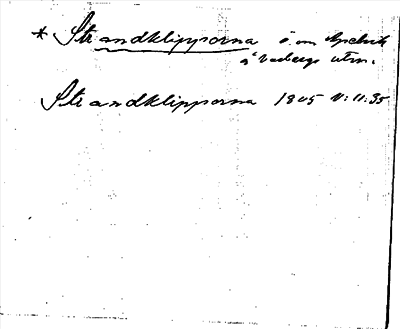 * Strandklipporna ö. om Apelvik
å Varbergs utm.
Strandklipporna 1805 V: 11: 35